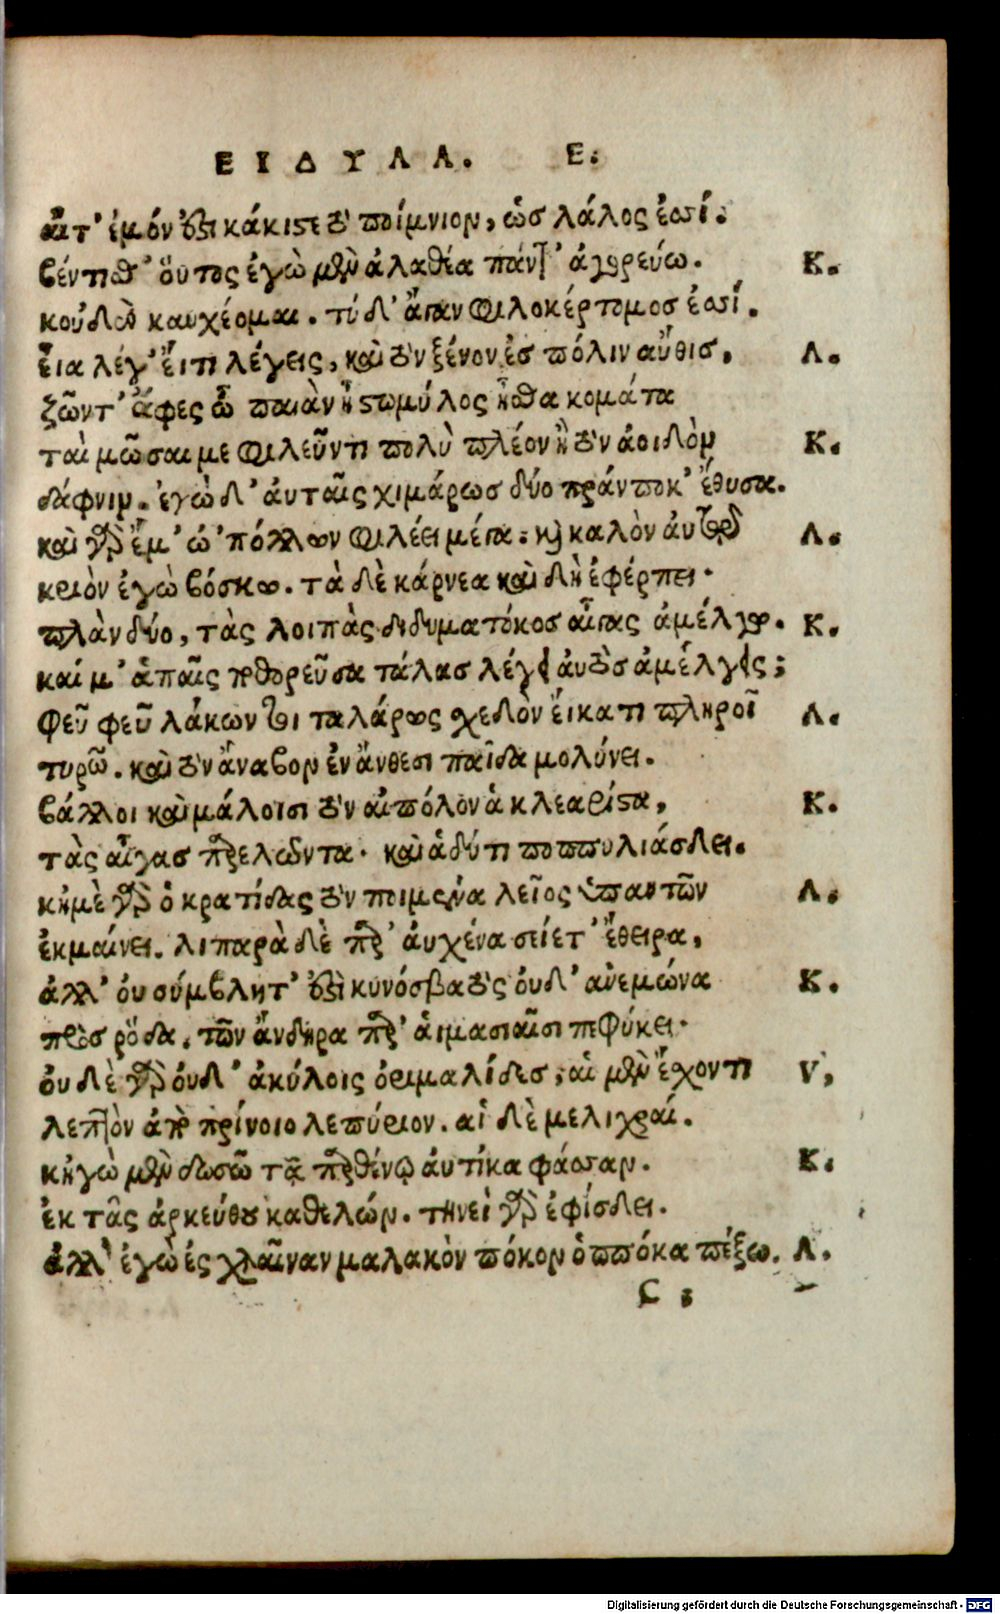 ΕΙΔΥΛΛ. Ε.
αἰτ' ἐμόν ἐστι κάκιστε τὸ ποίμνιον, ὡς λάλος ἐσσί.
βέντισθ' οὗτος ἐγὼ μὲν ἀλαθέα πάντ' ἀγορεύω. Κ.
κοὐδὲν καυχέομαι. τύ δ' ἄγαν φιλοκέρτομος ἐσσί.
εἶα λέγ' εἴτι λέγεις, καὶ τὸν ξένον ἐς πόλιν αὖθις, Λ.
ζῶντ' ἄφες ὦ παιὰν ἢ στωμύλος ἦσθα κομάτα
ταὶ μῶσαι με φιλεῦντι πολὺ πλέον ἢ τὸν ἀοιδὸν Κ.
δάφνιν. ἐγὼ δ' αὐταῖς χιμάρως δύο πράν ποκ' ἔθυσα.
καὶ γὰρ ἔμ' ὡ 'πόλλων φιλέει μέγα. καὶ καλὸν αὐτῷ Λ.
κριὸν ἐγὼ βόσκω. τὰ δὲ κάρνεα καὶ δὴ ἐφέρπει.
πλὰν δύο, τὰς λοιπὰς διδυματόκος αἶγας ἀμέλγω. Κ.
καί μ' ἁ παῖς ποθορεῦσα τάλας λέγει αὐτὸς ἀμέλγεις;
φεῦ φεῦ λάκων τοι ταλάρως σχεδὸν εἴκατι πληροῖ Λ.
τυρῶ. καὶ τὸν ἄναβον ἐν ἄνθεσι παῖδα μολύνει.
βάλλοι καὶ μάλοισι τὸν αἰπόλον ἁ κλεαρίστα, Κ.
τὰς αἶγας παρελῶντα. καὶ ἁδύ τι ποππυλιάσδει.
κἠμὲ γὰρ ὁ κρατίδας τὸν ποιμένα λεῖος ὑπαντῶν Λ.
ἐκμαίνει. λιπαρὰ δὲ παρ' αὐχένα σείετ' ἔθειρα,
ἀλλ' οὐ σύμβλητ' ἐστὶ κυνόσβατος οὐδ' ἀνεμώνα Κ.
πρὸς ῥόδα. τῶν ἄνδηρα παρ' αἱμασιαῖσι πεφύκει.
οὐδὲ γὰρ οὐδ' ἀκύλοις ὀριμαλίδες, αἱ μὲν ἔχοντι V,
λεπτὸν ἀπὸ πρίνοιο λεπύριον. αἱ δὲ μελιχραί.
κἠγὼ μὲν δωσῶ τᾷ παρθένῳ αὐτίκα φάσσαν. Κ.
ἐκ τᾶς ἀρκεύθου καθελών. τηνεὶ γὰρ ἐφίσδει.
ἀλλ' ἐγὼ ἐς χλαῖναν μαλακὸν πόκον ὁππόκα πέξω. Λ.
C ;
Digitalisierung gefördert durch die Deutsche Forschungsgemeinschaft - DFG